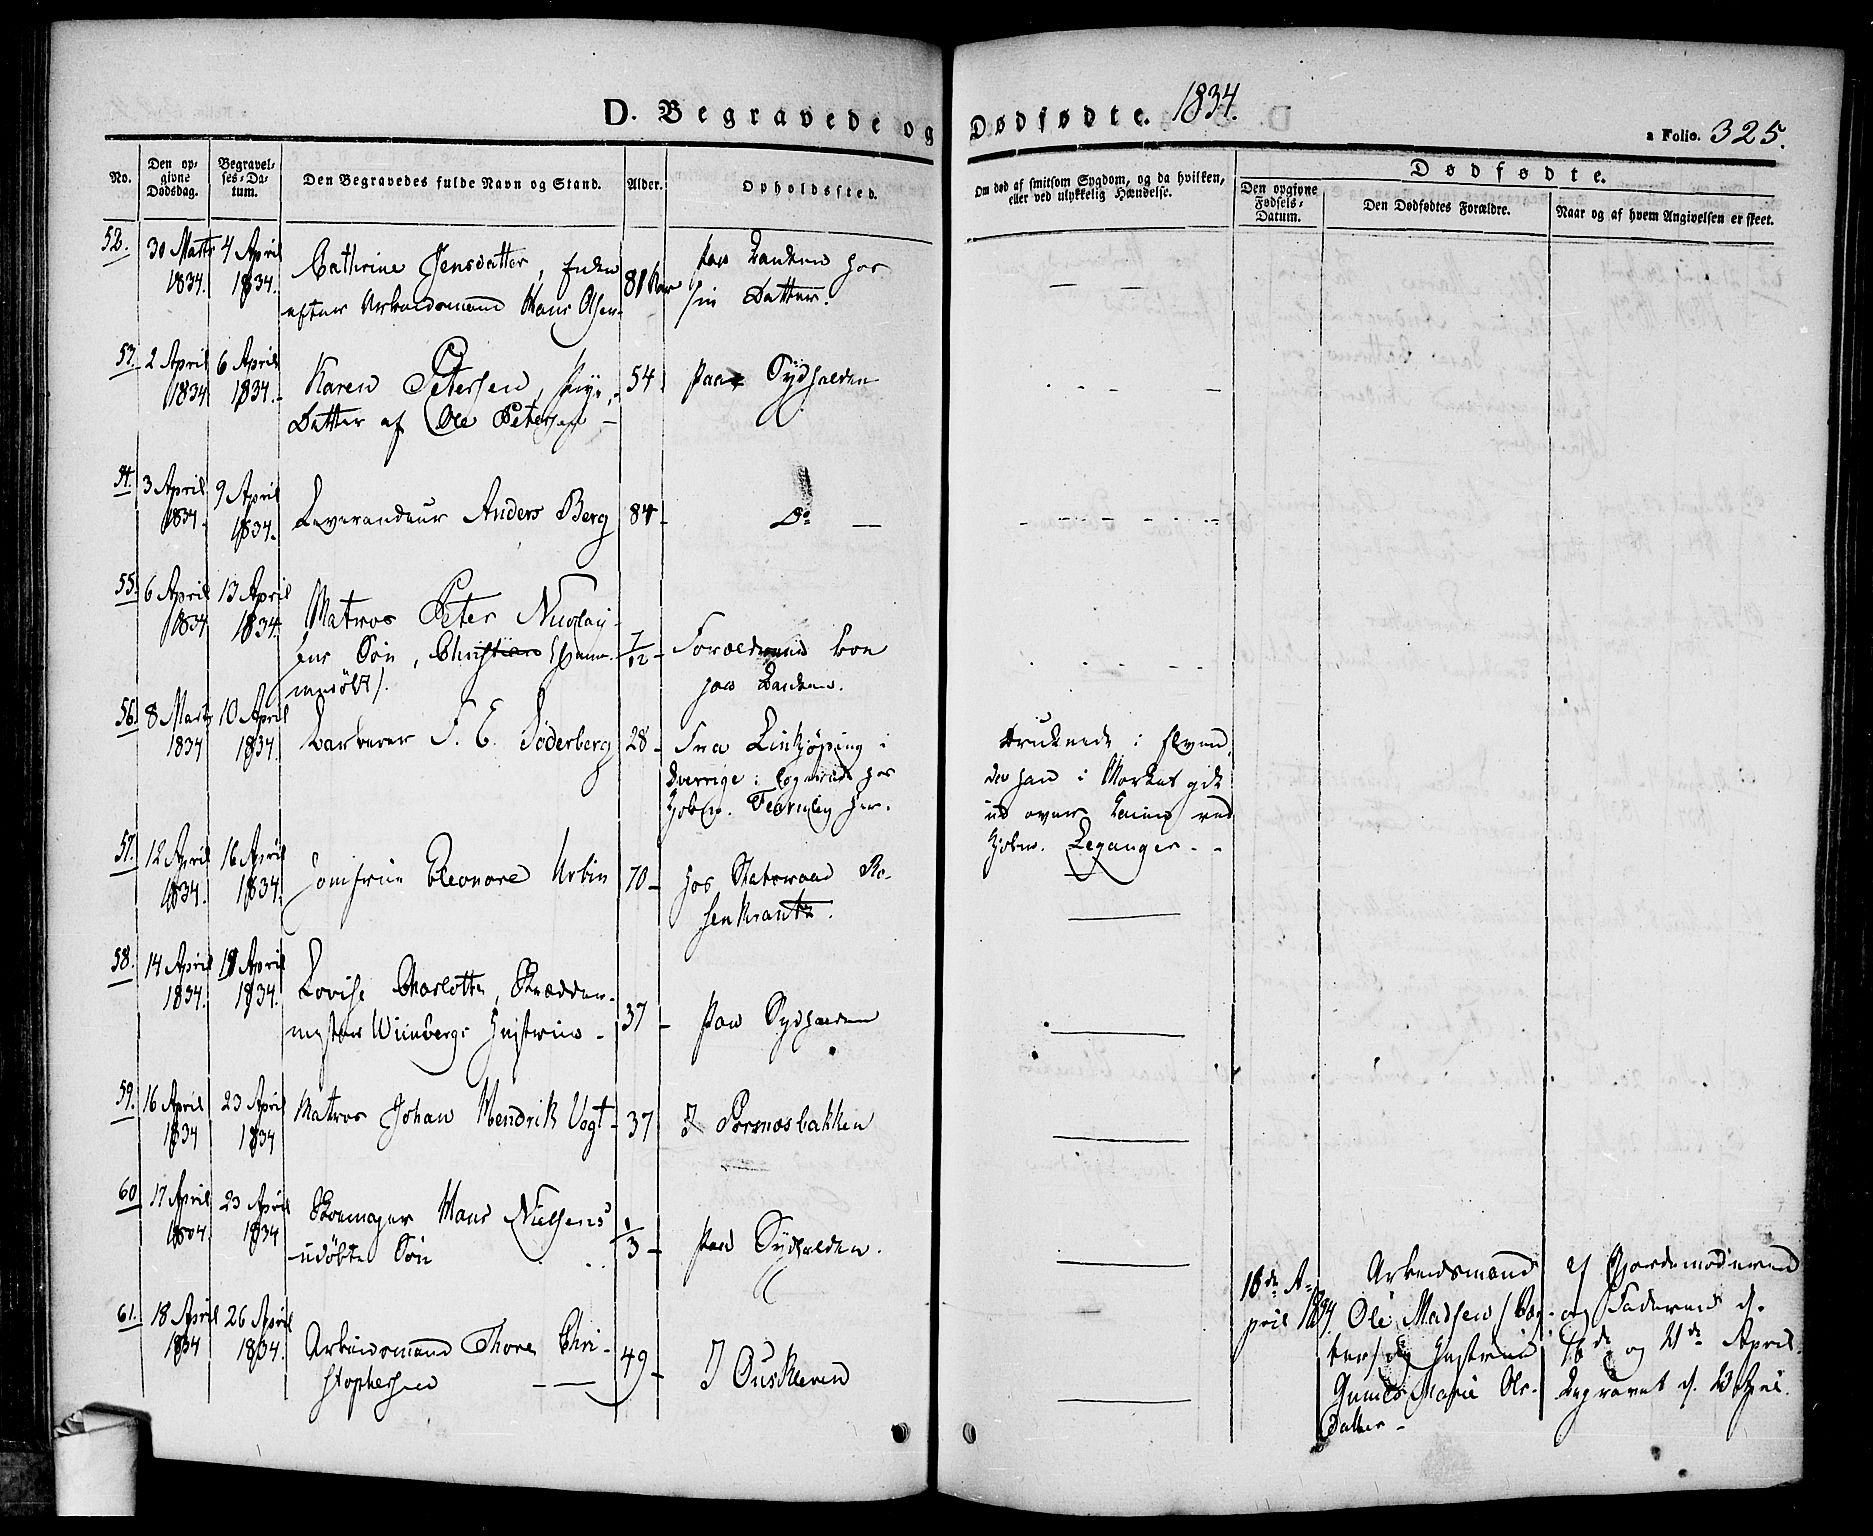 D. Begravede og Dødfødte. 1834.
a Folio. 325.
No.
Den opgivne Dødsdag.
Begravelses-Datum.
Den Begravedes fulde Navn og Stand.
Alder.
Opholdssted.
Om død af smitsom Sygdom, og da hvilken, eller ved ulykkelig Hændelse.
Dødfødte.
Den opgivne Fødsels-Datum.
Den Dødfødtes Forældre.
Naar og af hvem Angivelsen er skeet.
52. 30 Marts 4 April Cathrine Jensdatter, Enke 81 Paa Banken hos
1834. 1834. efter Arbeidsmand Hans Olsen sin Datter.
53. 2 April 6 April Karen Petersen, Pige, 54 Paa Sydhalden
1834 1834. Datter af Ole Petersen
54. 3 April 9 April
1834. 1834. Leverandeur Anders Berg 84 Do
55. 6 April 13 April Matros Peter Nicolay-
1834 1834 sens Søn, Christian (hjem- 7/12 Forældrene boe
medøbt). paa Banken.
56. 8 Marts 10 April Barberer F. E. Söderberg 28 Fra Linkjöping i druknede i Elven,
1834 1834. Sverrige; logerede hos da han i Mørket gik
her. ud over ved
Leganger.
57. 12 April 16 April Jomfrue Eleonore Urbin 70 hos Statsraad Ro-
1834. 1834. senkrantz.
58. 14 April 19 April Lovise Charlotte, Skrædder-
1834. 1834. mester Wiinbergs Hustrue 37 Paa Sydhalden
59. 16 April 23 April Matros Johan Hendrik Vogt 37 I Porsnesbakken
1834 1834
60 17 April 23 April Skomager Hans Nielsens
1834 1834 udøbte Søn 1/3 Paa Sydhalden.
61. 18 April 26 April Arbeidsmand Thore Chri- 49 I Ouskleven
1834 1834. stophersen
16de A- Arbeidsmand af Gjordemoderen
pril 1834. Ole Madsen og Faderen d.
Hustrue 16de og 21de April.
Marie Ols- Begravet d. 23 April.
Datter